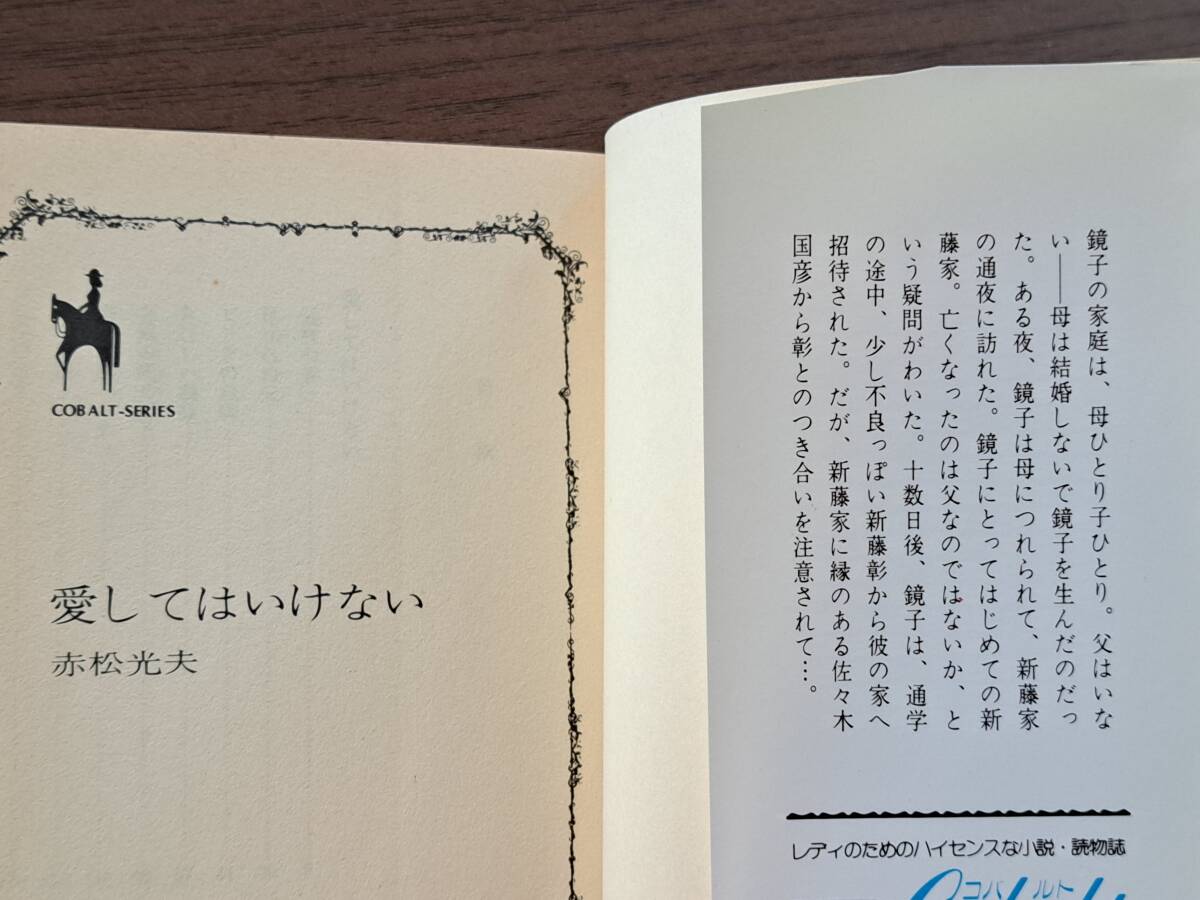 COBALT-SERIES
愛してはいけない
赤松光夫
鏡子の家庭は、母ひとり子ひとり。父はいな
い——母は結婚しないで鏡子を生んだのだっ
た。ある夜、鏡子は母につれられて、新藤家
の通夜に訪れた。鏡子にとってはじめての新
藤家。亡くなったのは父なのではないか、と
いう疑問がわいた。十数日後、鏡子は、通学
の途中、少し不良っぽい新藤彰から彼の家へ
招待された。だが、新藤家に縁のある佐々木
国彦から彰とのつき合いを注意されて…。
レディのためのハイセンスな小説・読物誌
コバルト